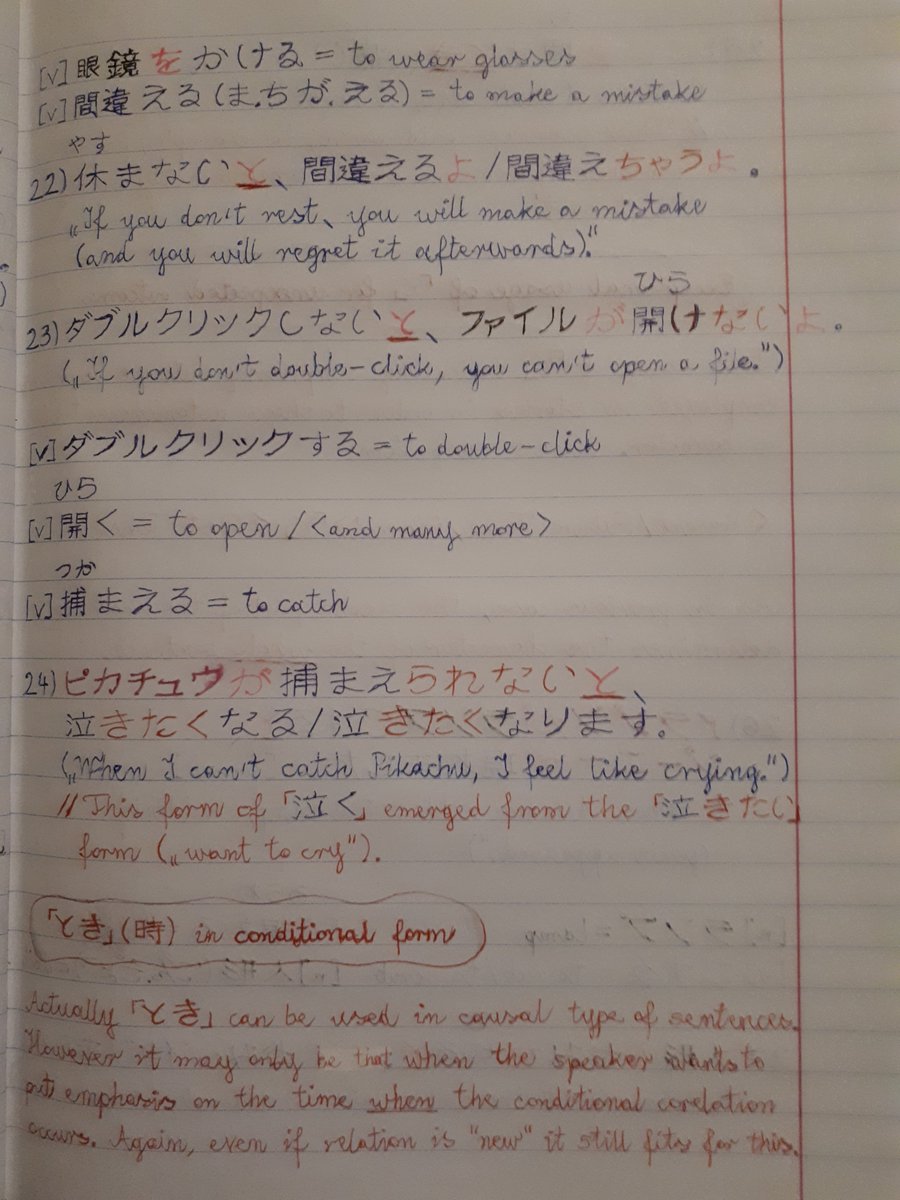 [v] 眼鏡をかける = to wear glasses
[v] 間違える (ま.ちが.える) = to make a mistake
やす
22) 休まないと、間違えるよ / 間違えちゃうよ。
„If you don't rest、you will make a mistake
(and you will regret it afterwards)."
ひら
23) ダブルクリックしないと、ファイルが開けないよ。
(„If you don't double-click, you can't open a file.")
[v] ダブルクリックする = to double-click
ひら
[v] 開く = to open / <and many more>
つか
[v] 捕まえる = to catch
24) ピカチュウが捕まえられないと、
泣きたくなる / 泣きたくなります。
(„When I can't catch Pikachu, I feel like crying.")
// This form of 「泣く」 emerged from the 「泣きたい」
form („want to cry").
「とき」(時) in conditional form
Actually 「とき」 can be used in causal type of sentences.
However it may only be that when the speaker wants to
put emphasis on the time when the conditional corelation
occurs. Again, even if relation is "new" it still fits for this.